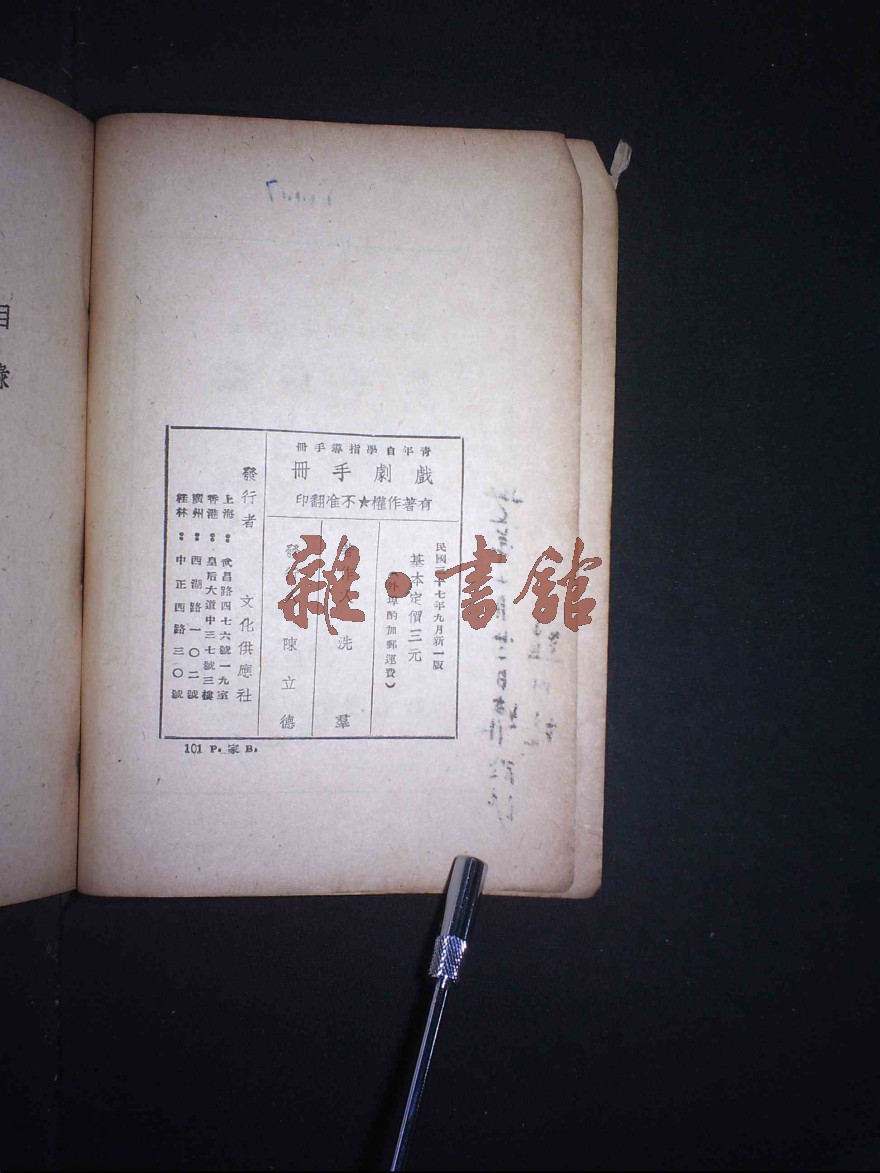 青年自學指導手冊
戲劇手冊
有著作權★不准翻印
民國三十七年九月新一版
基本定價三元
(外埠酌加郵運費)
著作人 洗羣
發行人 陳立德
發行者 文化供應社
上海：武昌路四七六號一九室
香港：皇后大道中三七號三樓
廣州：西湖路一〇二號
桂林：中正西路三〇號
101 P. 家 B.
目錄
雜·書館